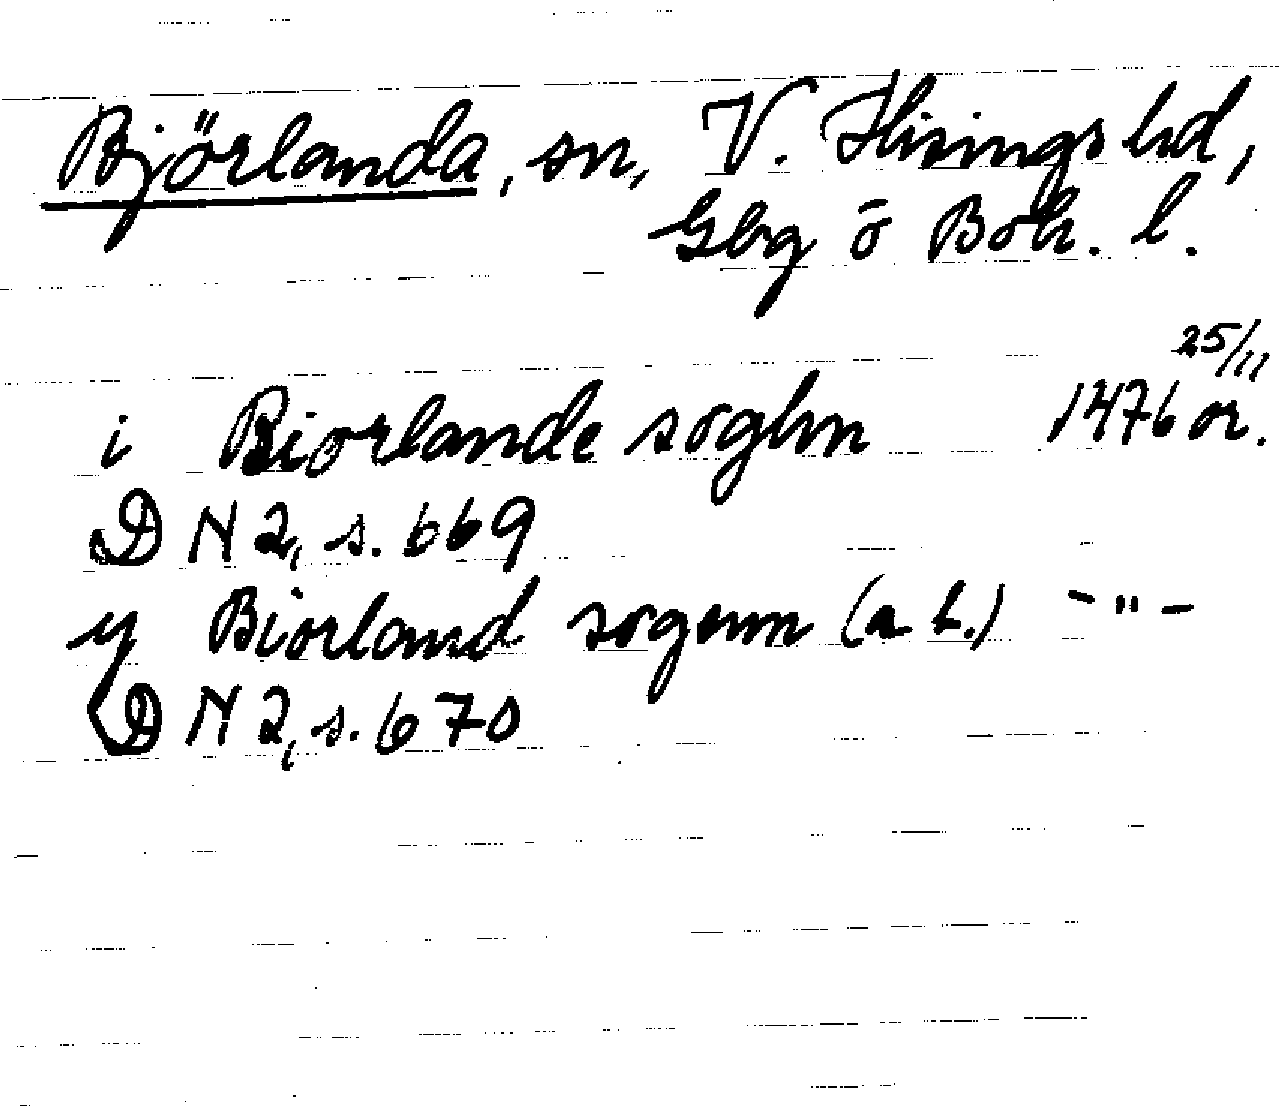 Björlanda, sn, V. Hisings hd,
Gbg o Boh. l.
25/11
i Biorlande soghn 1476 or.
DN 2, s. 669
y Biorland sogenn (a. t.) -"-
DN 2, s. 670